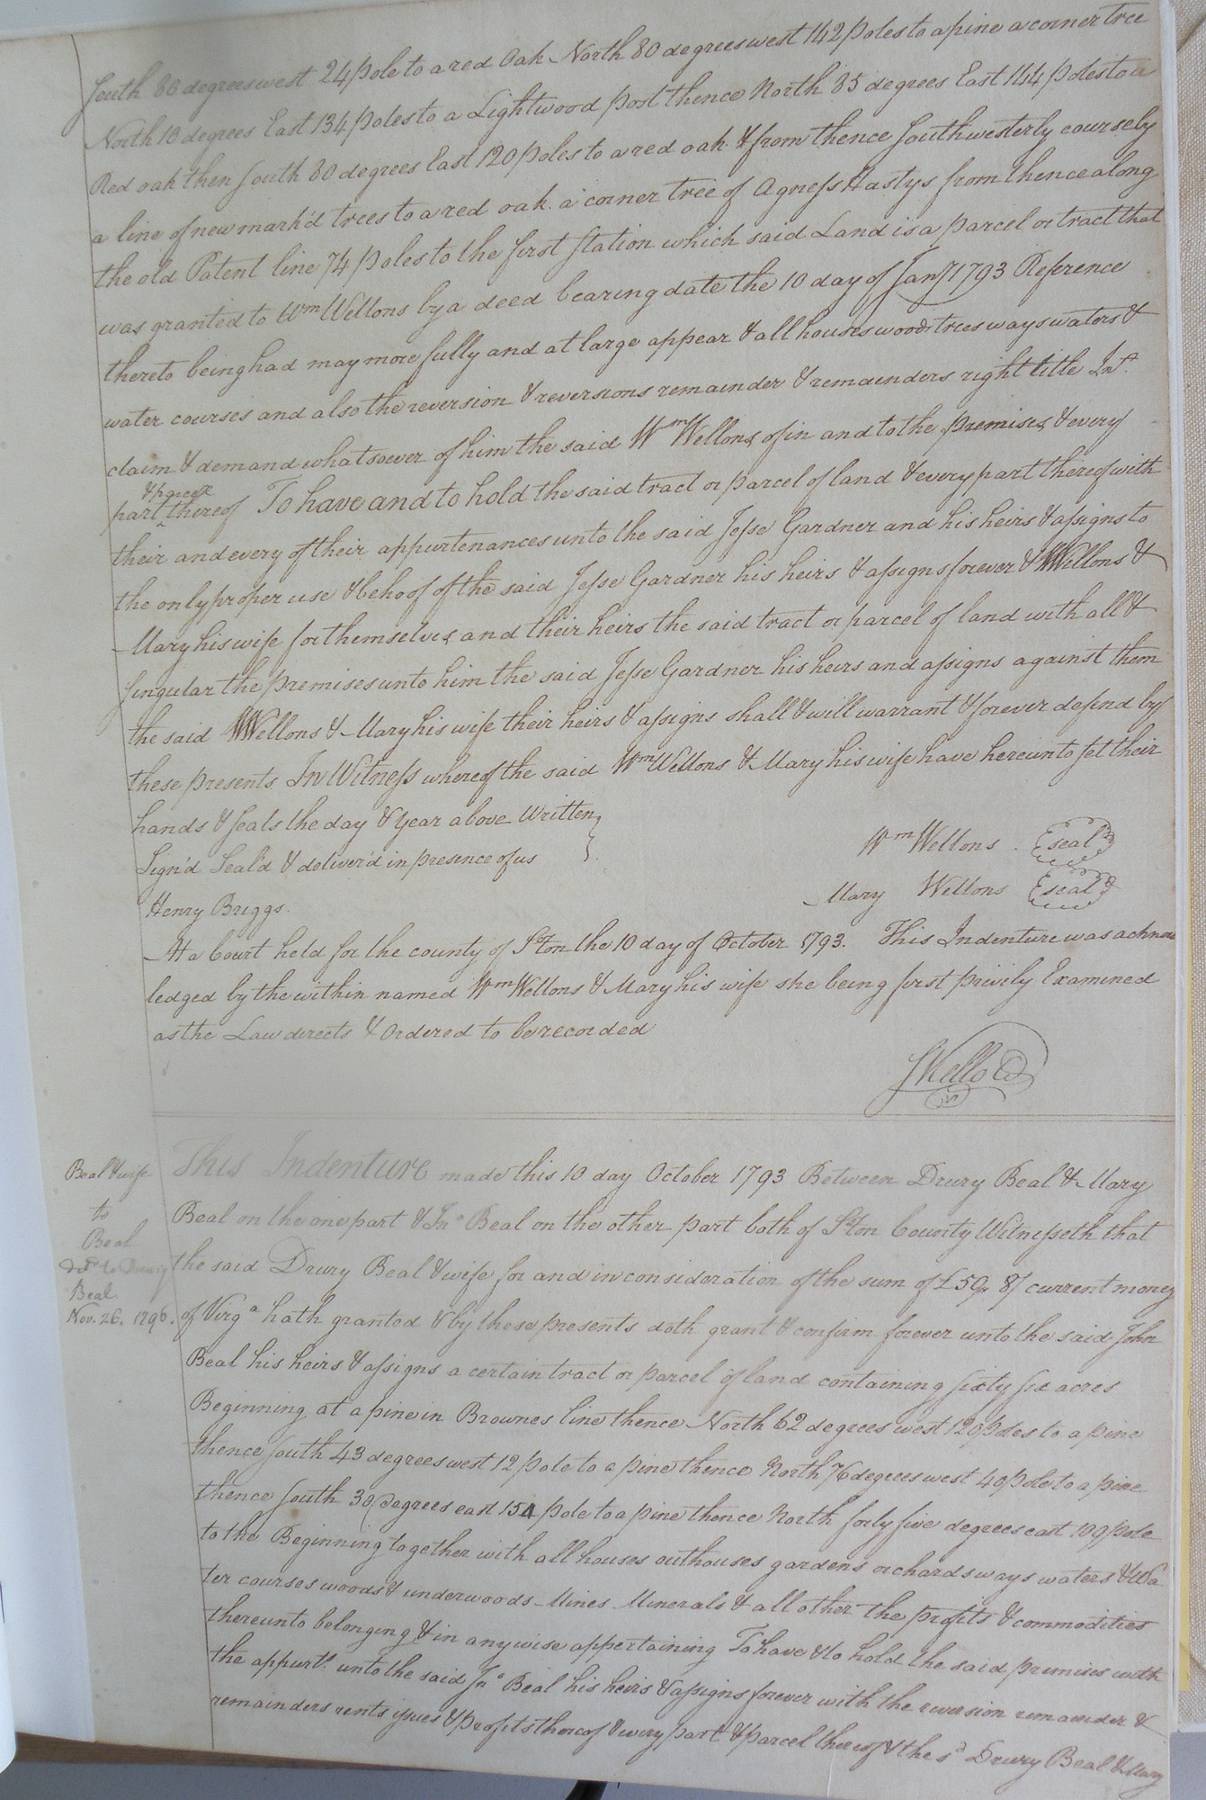 South 86 degrees west 24 pole to a red Oak North 80 degrees west 142 poles to a pine a corner tree
North 18 degrees East 134 poles to a Lightwood post thence North 35 degrees East 144 poles to a
Red oak then South 80 degrees East 120 poles to a red oak & from thence Southwesterly course by
a line of new mark'd trees to a red oak a corner tree of Agness Hastys from thence along
the old Patent line 74 poles to the first station which said Land is a parcel or tract that
was granted to Wm Wellons by a deed bearing date the 10 day of Jany 1793 Reference
thereto being had may more fully and at large appear & all houses woods trees ways waters &
water courses and also the reversion & reversions remainder & remainders right title Int.
claim & demand whatsoever of him the said Wm Wellons of in and to the premises & every
& parcel
part thereof To have and to hold the said tract or parcel of land & every part thereof with
their and every of their appurtenances unto the said Jesse Gardner and his heirs & assigns to
the only proper use & behoof of the said Jesse Gardner his heirs & assigns forever & WWellons &
Mary his wife for themselves and their heirs the said tract or parcel of land with all &
singular the premises unto him the said Jesse Gardner his heirs and assigns against them
the said WWellons & Mary his wife their heirs & assigns shall & will warrant & forever defend by
these presents In Witness whereof the said Wm Wellons & Mary his wife have hereunto set their
hands & seals the day & Year above Written
Sign'd Seal'd & deliver'd in presence of us
Wm Wellons seal
Henry Briggs
Mary Wellons seal
At a Court held for the county of Sºton the 10 day of October 1793. This Indenture was acknow
ledged by the within named Wm Wellons & Mary his wife she being first privily Examined
as the Law directs & Ordered to be recorded
SKello CC
Beal & wife
to
Beal
Beal
Nov. 26. 1796.
This Indenture made this 10 day October 1793 Between Drury Beal & Mary
Beal on the one part & Jnº Beal on the other part both of Sºton County Witnesseth that
the said Drury Beal & wife for and in consideration of the sum of £59,, 8/ current money
of Virgª hath granted & by these presents doth grant & confirm forever unto the said John
Beal his heirs & assigns a certain tract or parcel of land containing sixty six acres
Beginning at a pine in Brownes line thence North 62 degrees west 120 poles to a pine
thence South 43 degrees west 12 pole to a pine thence North 76 degrees west 40 pole to a pine
thence South 30 degrees east 154 pole to a pine thence North forty five degrees east 109 pole
to the Beginning together with all houses outhouses gardens orchards ways waters & Wa
ter courses woods & underwoods Mines Minerals & all other the profits & commodities
thereunto belonging & in any wise appertaining To have & to hold the said premises with
the appurts. unto the said Jnº Beal his heirs & assigns forever with the reversion remainder &
remainders rents issues & profits thereof & every part & parcel thereof & the sd Drury Beal & Mary